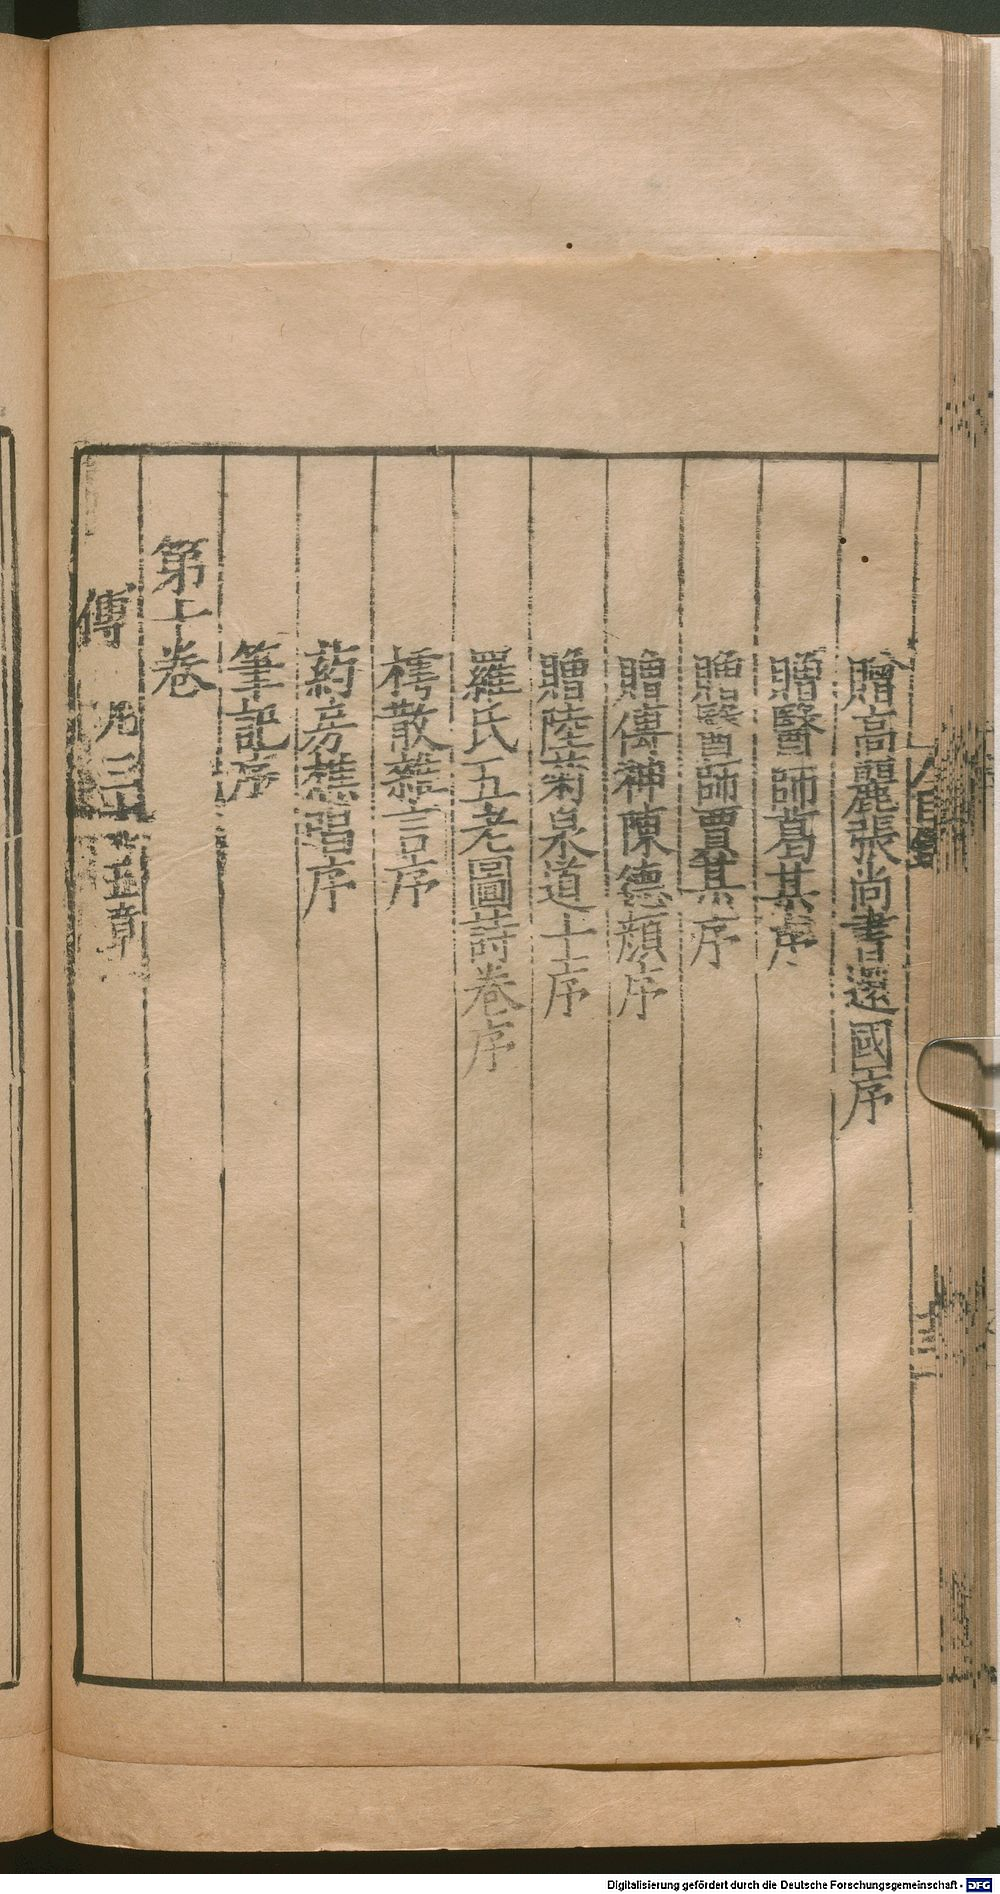 贈高麗張尚書還國序
贈醫師葛某序
贈醫師賈某序
贈傳神陳德顏序
贈陸菊泉道士序
羅氏五老圖詩卷序
樗散雜言序
葯房樵唱序
筆記序
第十卷
傳 凡三十五章
Digitalisierung gefördert durch die Deutsche Forschungsgemeinschaft - DFG